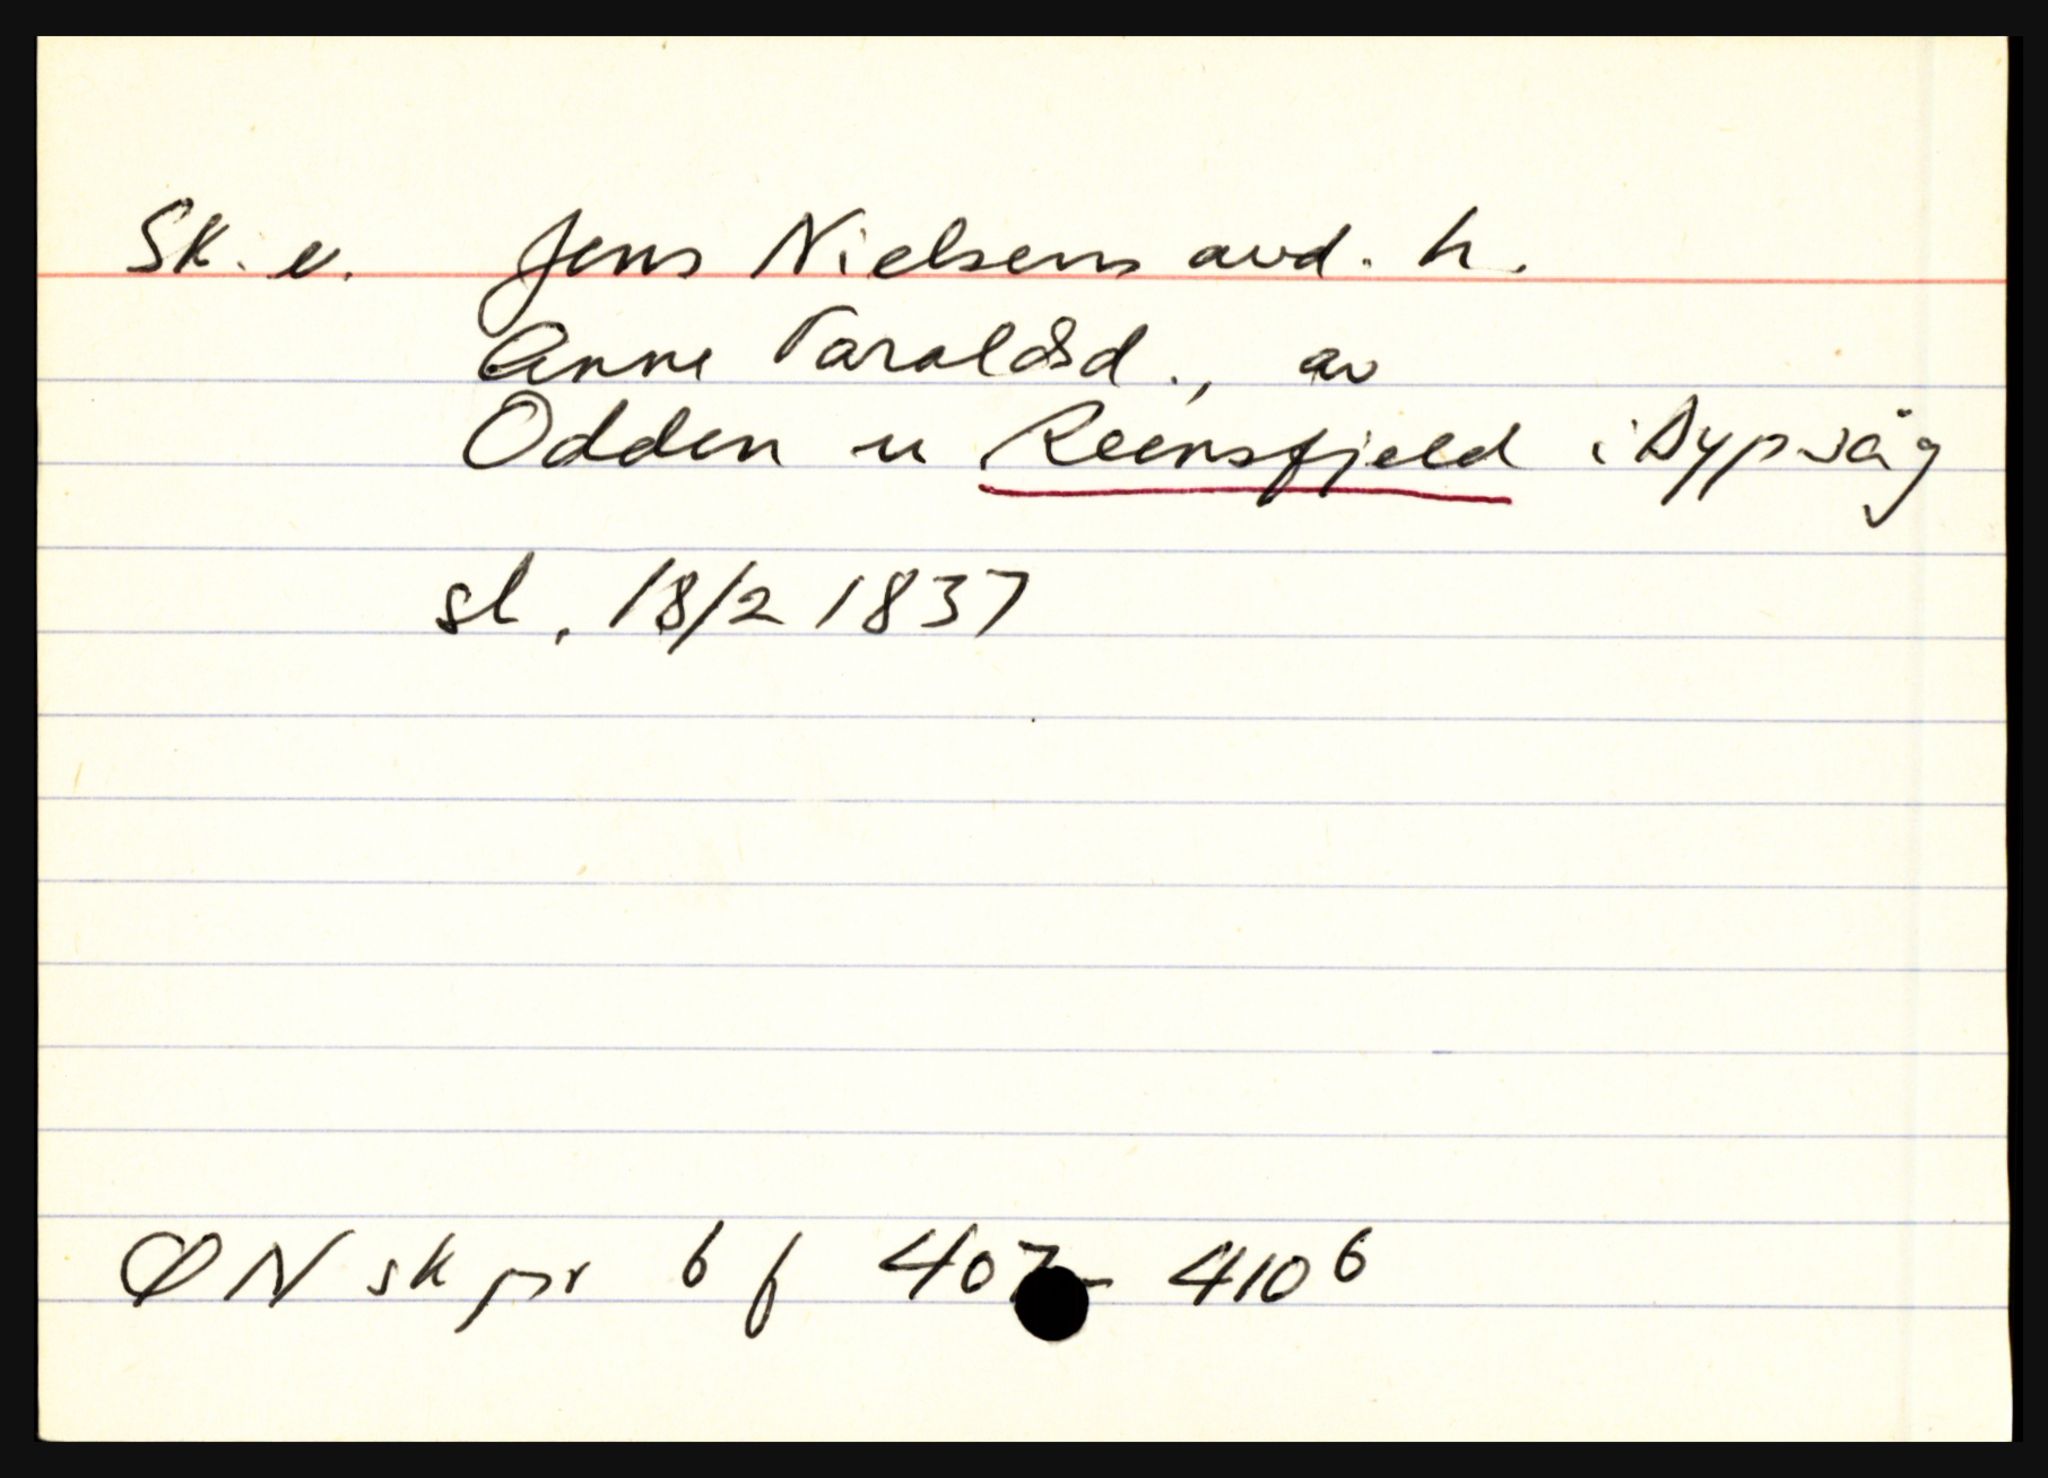 Sk. e. Jens Nielsens avd. h.
Anne Taraldsd., av
Odden u Reensfjeld i Dypvåg
sl. 18/2 1837
ØN sk pr 6 f 407 - 410 b